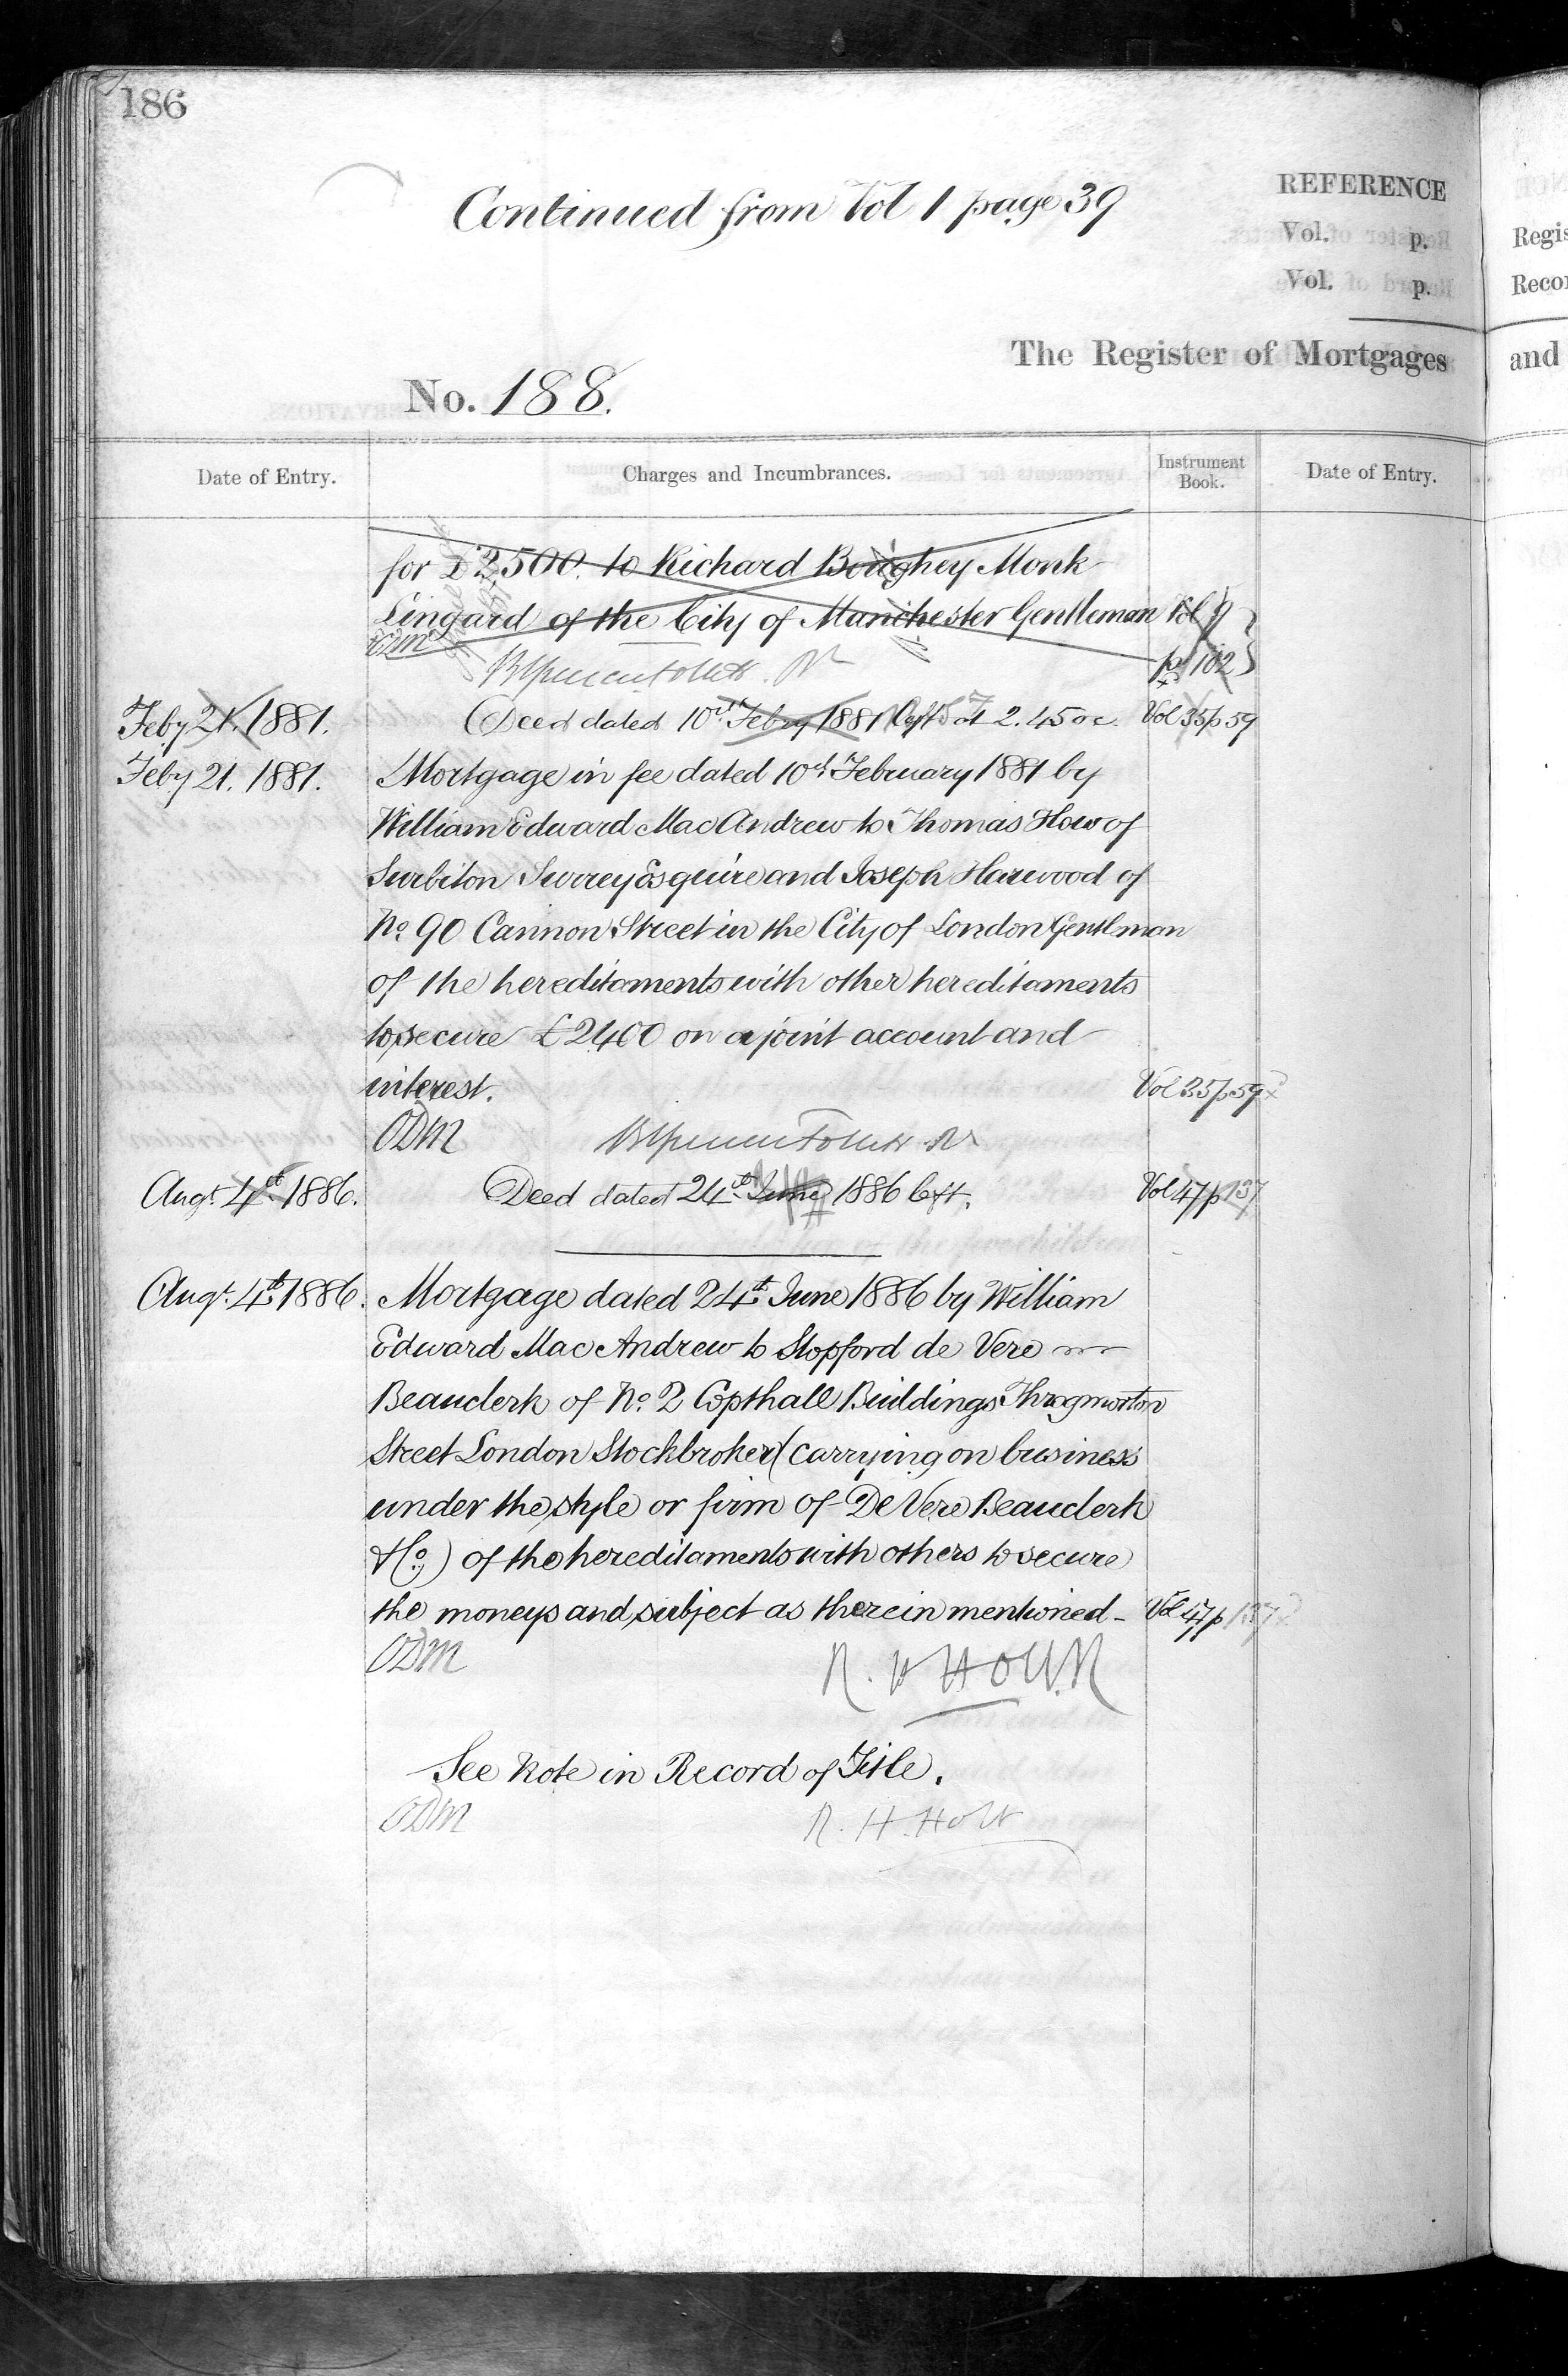 186
Continued from Vol 1 page 39
REFERENCE
Vol. p.
Vol. p.
The Register of Mortgages
No. 188.
Date of Entry. Charges and Incumbrances. Instrument Book. Date of Entry.
for £2,500. to Richard Boughey Monk
Lingard of the City of Manchester Gentleman Vol 9
ODM p 102
Feby 21. 1881. Deed dated 10th Feby 1881 left at 2.45 oc Vol 35 p 59
Feby 21. 1881. Mortgage in fee dated 10th February 1881 by
William Edward MacAndrew to Thomas How of
Surbiton Surrey Esquire and Joseph Harwood of
No. 90 Cannon Street in the City of London Gentleman
of the hereditaments with other hereditaments
to secure £2400 on a joint account and
interest. Vol 35 p 59
ODM
Augt. 4th 1886. Deed dated 24th June 1886 left. Vol 47 p 137
Augt. 4th 1886. Mortgage dated 24th June 1886 by William
Edward Mac Andrew to Stopford de Vere
Beauclerk of No. 2 Copthall Buildings Throgmorton
Street London Stockbroker (carrying on business
under the style or firm of De Vere Beauclerk
& Co.) of the hereditaments with others to secure
the moneys and subject as therein mentioned - Vol 47 p 137
ODM R. H Holt. R
See Note in Record of Title.
ODM R. H. Holt
Regis
Recor
and